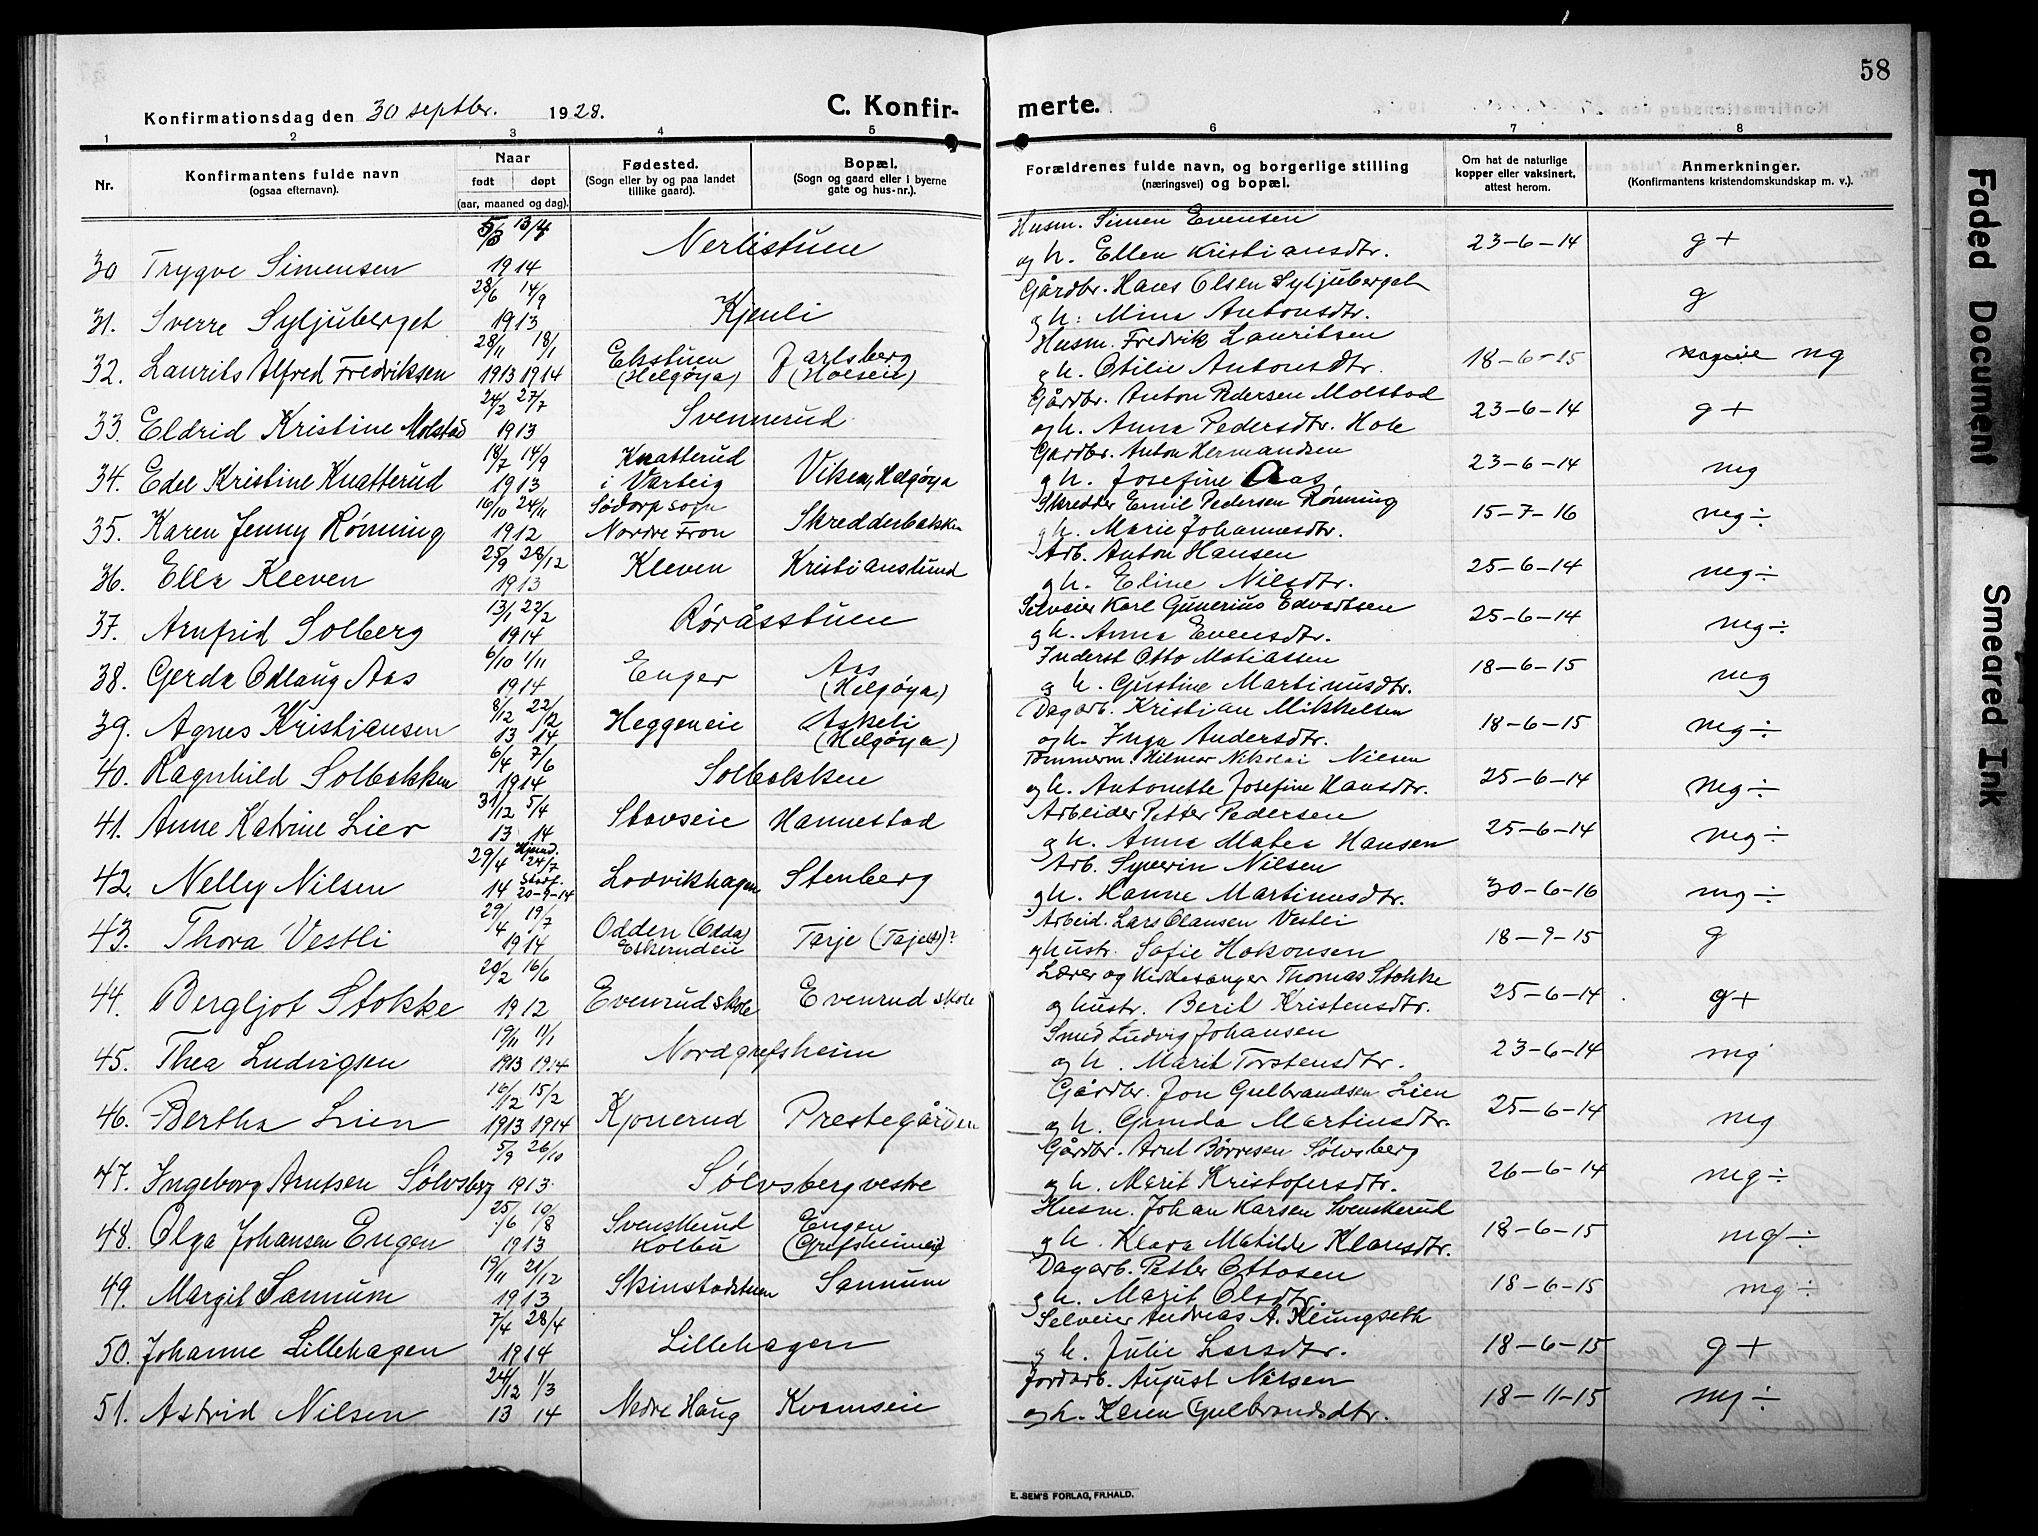 58
Konfirmationsdag den 30 septbr. 1928. C. Konfirmerte.
1 2 3 4 5 6 7 8
Nr.
Konfirmantens fulde navn
(ogsaa efternavn).
Naar
født døpt
(aar, maaned og dag).
Fødested.
(Sogn eller by og paa landet
tillike gaard).
Bopæl.
(Sogn og gaard eller i byerne
gate og hus-nr.).
Forældrenes fulde navn, og borgerlige stilling
(næringsvei) og bopæl.
Om hat de naturlige
kopper eller vaksinert,
attest herom.
Anmerkninger.
(Konfirmantens kristendomskundskap m. v.).
30 Trygve Simensen 5/3 13/4 1914 Nerlistuen Husm. Simen Evensen
og h. Ellen Kristiansdtr. 23-6-14 g+
31. Sverre Syljuberget 28/6 14/9 1913 Kjenli Gårdbr. Hans Olsen Syljuberget
og h: Mina Antonsdtr. g
32. Laurits Alfred Fredriksen 28/11 18/1 1913 1914 Ekstuen (Helgøya) Jarlsberg (Hoelseie) Husm. Fredrik Lauritsen
og h. Otilie Antonsdtr. 18-6-15 ng
33. Eldrid Kristine Molstad 24/2 27/7 1913 Svennerud Gårdbr. Anton Pedersen Molstad
og h. Anna Pedersdtr. Hole 23-6-14 g+
34. Edel Kristine Knatterud 18/7 14/9 1913 Knatterud i Varteig Viken, Helgøya Gardbr. Anton Hermandsen
og h. Josefine Aas 23-6-14 mg
35. Karen Jenny Rønning 16/10 24/11 1912 Sødorp sogn Nordre Fron Skredderbakken Skredder Emil Pedersen Rønning
og h. Marie Johannesdtr. 15-7-16 mg÷
36. Ella Kleven 25/9 28/12 1913 Kleven Kristianslund Arb. Anton Hansen
og h. Eline Nilsdtr. 25-6-14 mg÷
37. Arnfrid Solberg 13/1 22/2 1914 Røråsstuen Selveier Karl Gunerius Edvardsen
og h. Anna Evensdtr. 25-6-14 mg÷
38. Gerda Odlaug Aas 6/10 1/11 1914 Enger Aas (Helgøya) Inderst Otto Matiassen
og h. Gustine Martinusdtr. 18-6-15 mg
39. Agnes Kristiansen 8/12 22/2 13 14 Heggeneie Askeli (Helgøya) Dagarb. Kristian Mikkelsen
og h. Inga Andersdtr. 18-6-15 mg÷
40. Ragnhild Solbakken 6/4 7/6 1914 Solbakken Tømmerm. Hilmar Nikolai Nilsen
og h. Antonette Josefine Hansdtr. 25-6-14 mg÷
41. Anne Katrine Lier 31/12 5/4 13 14 Stavseie Hannestad Arbeider Petter Pedersen
og h. Anna Matea Hansen 25-6-14 mg÷
42. Nelly Nilsen 29/4 14 Hjemd. 24/7 Stadf. 20-9-14 Lodvikhagen Stenberg Arb. Syverin Nilsen
og h. Hanne Martinusdtr. 30-6-16 mg÷
43. Thora Vestli 29/4 19/7 1914 Odden (Odda) Tarje (Tajets)? Arbeid. Lars Olausen Vestli
og hustr. Sofie Hakonsen 18-9-15 g
44. Bergljot Stokke 20/2 16/6 1912 Evenrud skole Evenrud skole Lærer og kirkesanger Thomas Stokke
og hustr. Berit Kristensdtr. 25-6-14 g+
45. Thea Ludvigsen 19/11 11/1 1913 1914 Nordgrefsheim Smed Ludvig Johansen
og h. Marit Torstensdtr. 23-6-14 mg
46. Bertha Lien 16/12 15/2 1913 1914 Kjonerud Prestegården Gårdbr. Jon Gulbrandsen Lien
og h. Gunda Martinsdtr. 25-6-14 mg
47. Ingeborg Arntsen Sølvsberg 5/9 26/10 1913 Sølvsberg vestre Gårdbr. Arnt Børresen Sølvsberg
og h. Marit Kristofersdtr. 26-6-14 mg÷
48. Olga Johansen Engen 25/6 10/8 1913 Svenskerud Kolbu Engen (Grefsheimeie) Husm. Johan Larsen Svenskerud
og h. Klara Matilde Klausdtr. 18-6-15 mg÷
49. Margit Sannum 19/11 21/12 1913 Skinstadstuen Sannum Dagarb. Petter Ottosen
og h. Marit Olsdtr. 18-6-15 mg÷
50. Johanne Lillehagen 7/4 28/4 1914 Lillehagen Selveier Andreas A. Klungseth
og h. Julie Larsdtr. 18-6-15 g+
51. Astrid Nilsen 24/12 1/3 13 14 Nedre Haug Kvamseie Jordarb. August Nilsen
og h. Karen Gulbrandsdtr. 18-11-15 mg÷
E. SEM'S FORLAG, FR.HALD.
Faded Document
Smeared Ink